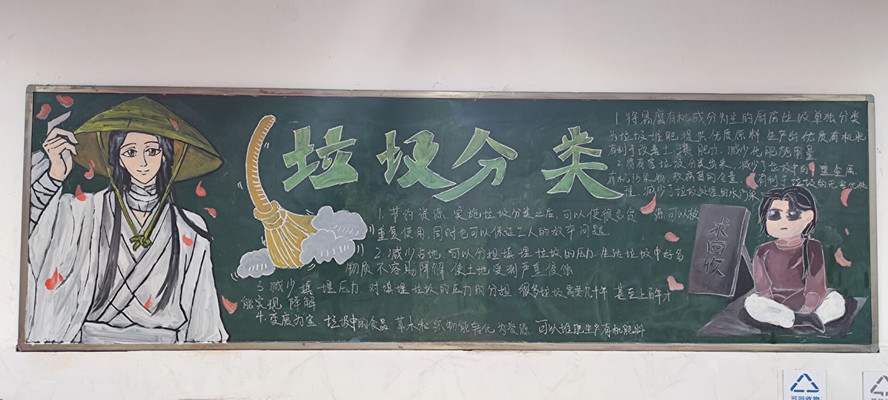 垃圾分类
1.将易腐有机成分为主的厨房垃圾单独分类
为垃圾堆肥提供优质原料 生产出优质有机肥
有利于改善土壤肥力、减少化肥施用量
2.将有害垃圾分类出来、减少了垃圾中的重金属、
有机污染物、致病菌的含量、有利于垃圾的无害化处
理、减少了垃圾处理的水污染
1.节约资源 实施垃圾分类之后,可以使很多资源可以被
重复使用,同时也可以保证工人的效率问题
2.减少占地,可以分担填埋垃圾的压力,生活垃圾中好多
物质不容易降解 使土地受到严重侵蚀
3.减少填埋压力 对填埋垃圾的压力的分担 很多垃圾需要几十年 甚至上百年才
能实现降解
4.变废为宝 垃圾中的食品 草木和织物能转化为资源 可以堆肥生产有机肥料
求回收
可回收物